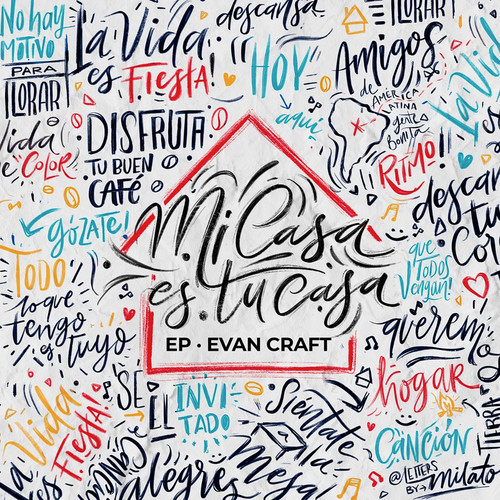 No hay
MOTIVO
PARA
LLORAR
La Vida
es FIESTA!
descansa
HOY
aquí
Amigos
de
AMERICA
LATINA
gente
Bonita
LLORAR
La Vida
RITMO!
Vida
COLOR
DISFRUTA
TU BUEN
CAFÉ
GÓZATE!
TODO
lo que
tengo
es tuyo
Mi Casa
es tu casa
EP · EVAN CRAFT
descans
tu
Cor
que
TODOS
Vengan!
querem
hogar
La Vida
FIESTA!
SE
EL
INVI
TADO
alegres
Siéntate
a la
Mesa
CANCIÓN
LLORAR
@LETTERS
BY→milato